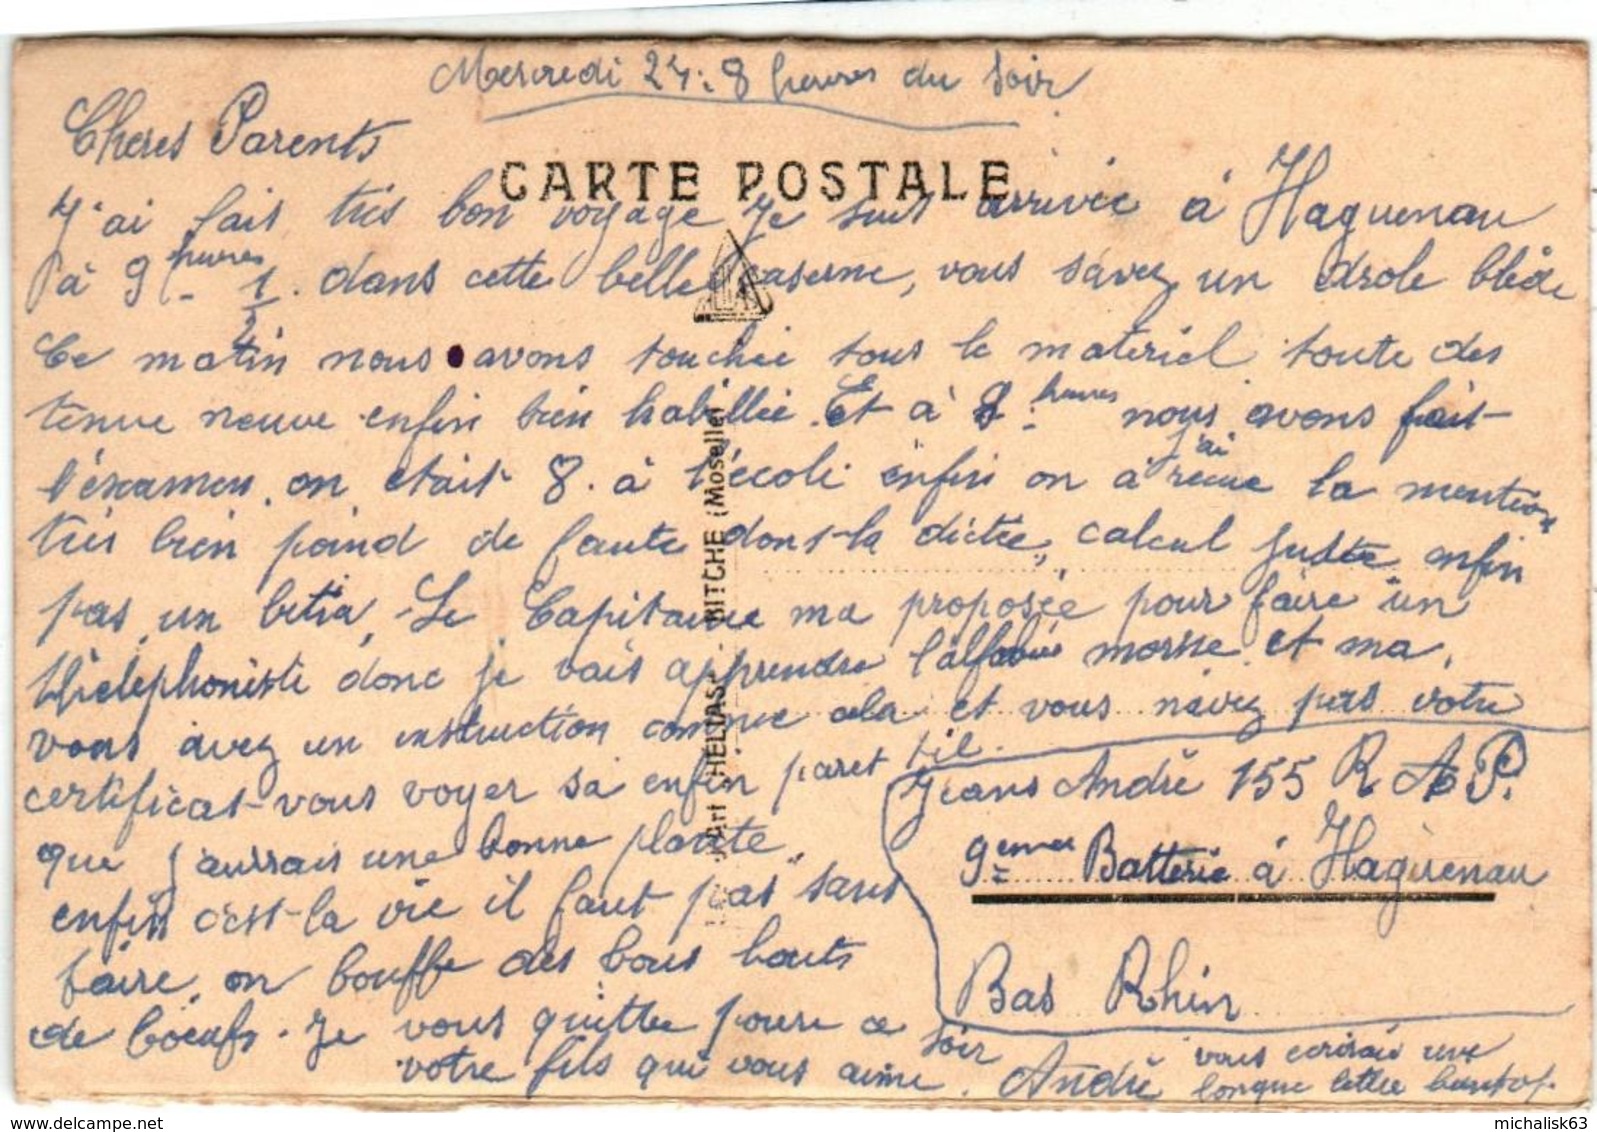 Mercredi 24: 8 heures du soir
Cheres Parents
CARTE POSTALE
J'ai fait très bon voyage je suis arrivée à Haguenau
à 9 heures 1/2. dans cette belle caserne, vous savez un drole blède
Ce matin nous avons touchée tous le matériel toute des
tenue neuve enfin bien habillée. Et à 8 heures nous avons fait
l'éxamen, on était 8. à l'école enfin on à j'ai recue la mention
très bien poind de faute dans la dictée, calcul juste enfin
pas un Le Capitaine ma proposée pour faire un
télephoniste donc je vais apprendre l'alfabée morse et ma,
vous avez un instruction comme cela et vous navez pas votre
certificat vous voyer sa enfin paret til.
que j'aurrais une bonne plante
enfin c'est la vie il faut pas sans
faire, on bouffe des bous bouts
de boeufs. Je vous quitte pour ce soir
votre fils qui vous aime. André
Jeans André 155 R A P.
9emme Batterie à Haguenau
Bas Rhin
vous une
longue lettre
D'Art HELIAS BITCHE (Moselle)
michalisk63